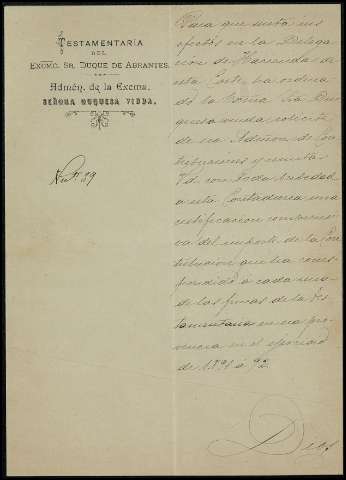 TESTAMENTARÍA
DEL
EXCMO. SR. DUQUE DE ABRANTES.
Admón. de la Excma.
SEÑORA DUQUESA VIUDA.
Num. 39
Para que surta sus
efectos en la Delega
cion de Hacienda de
esta Corte, ha ordena
do la Excma Sra Du
quesa viuda solicite
de esa Admon de Con
tribuciones y remita
Vd con toda brevedad
a esta Contaduria una
certificacion comprensi
va del importe de la Con
tribucion que ha corres
pondido á cada una
de las fincas de la Tes
tamentaria en esa pro
vincia en el ejercicio
de 1891 á 92.
Dios